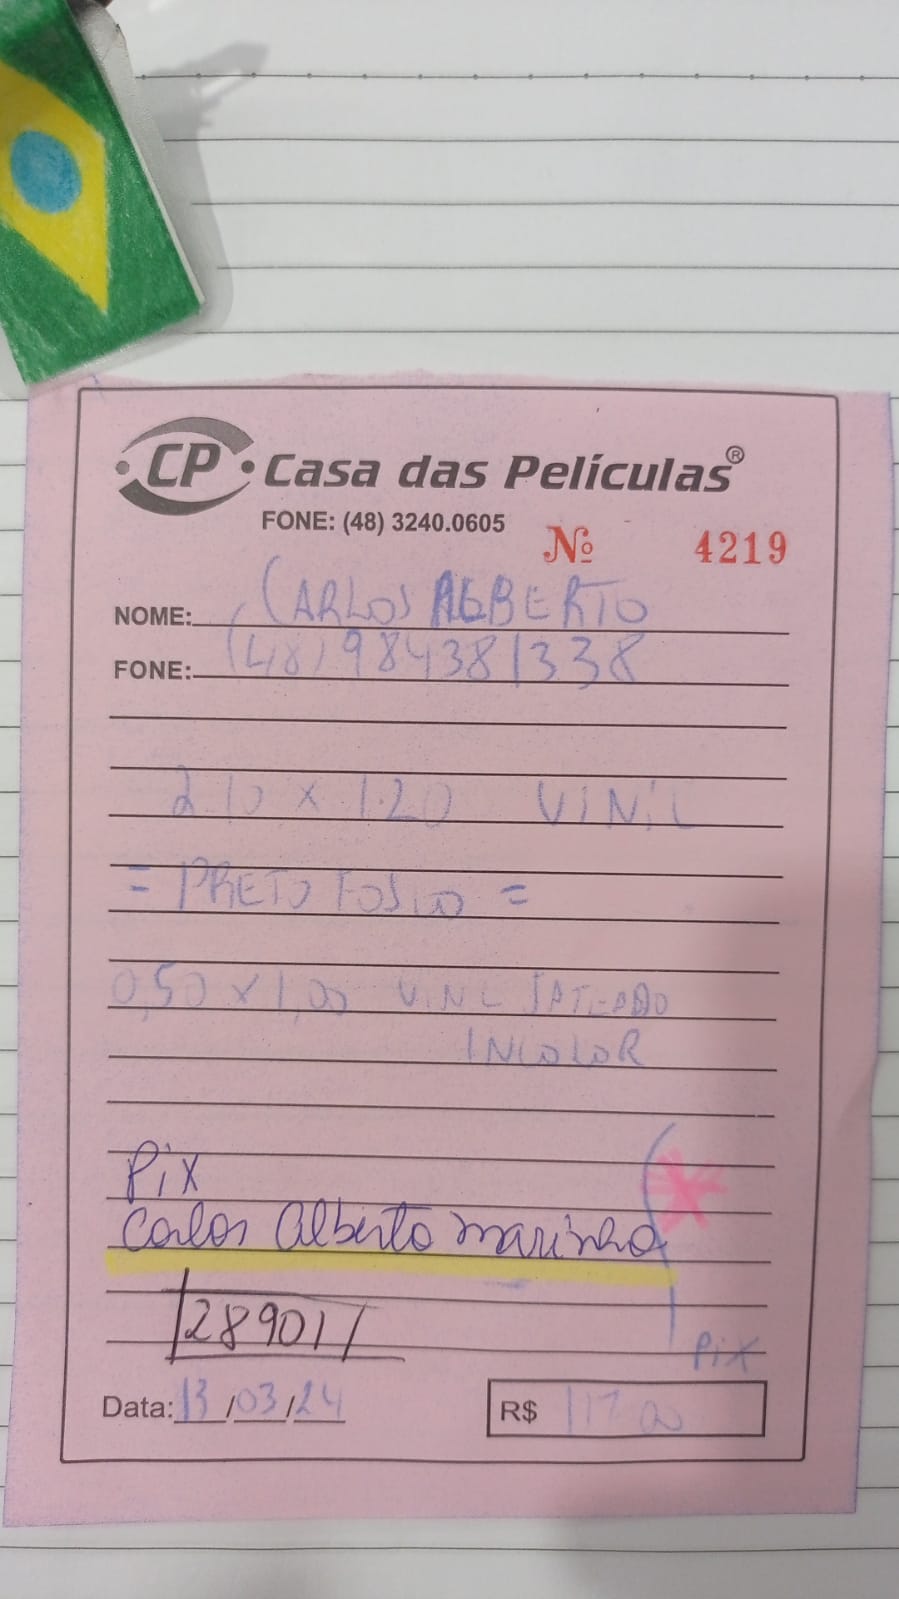 CP Casa das Películas®
FONE: (48) 3240.0605
Nº 4219
NOME: CARLOS ALBERTO
FONE: (48) 984381338
2.10 x 1.20 VINIL
= PRETO FOSCO =
0,50 x 1,00 VINIL JATEADO
INCOLOR
Pix
Carlos Alberto Marinho
289011
Pix
Data: 13/03/24
R$ 117,00